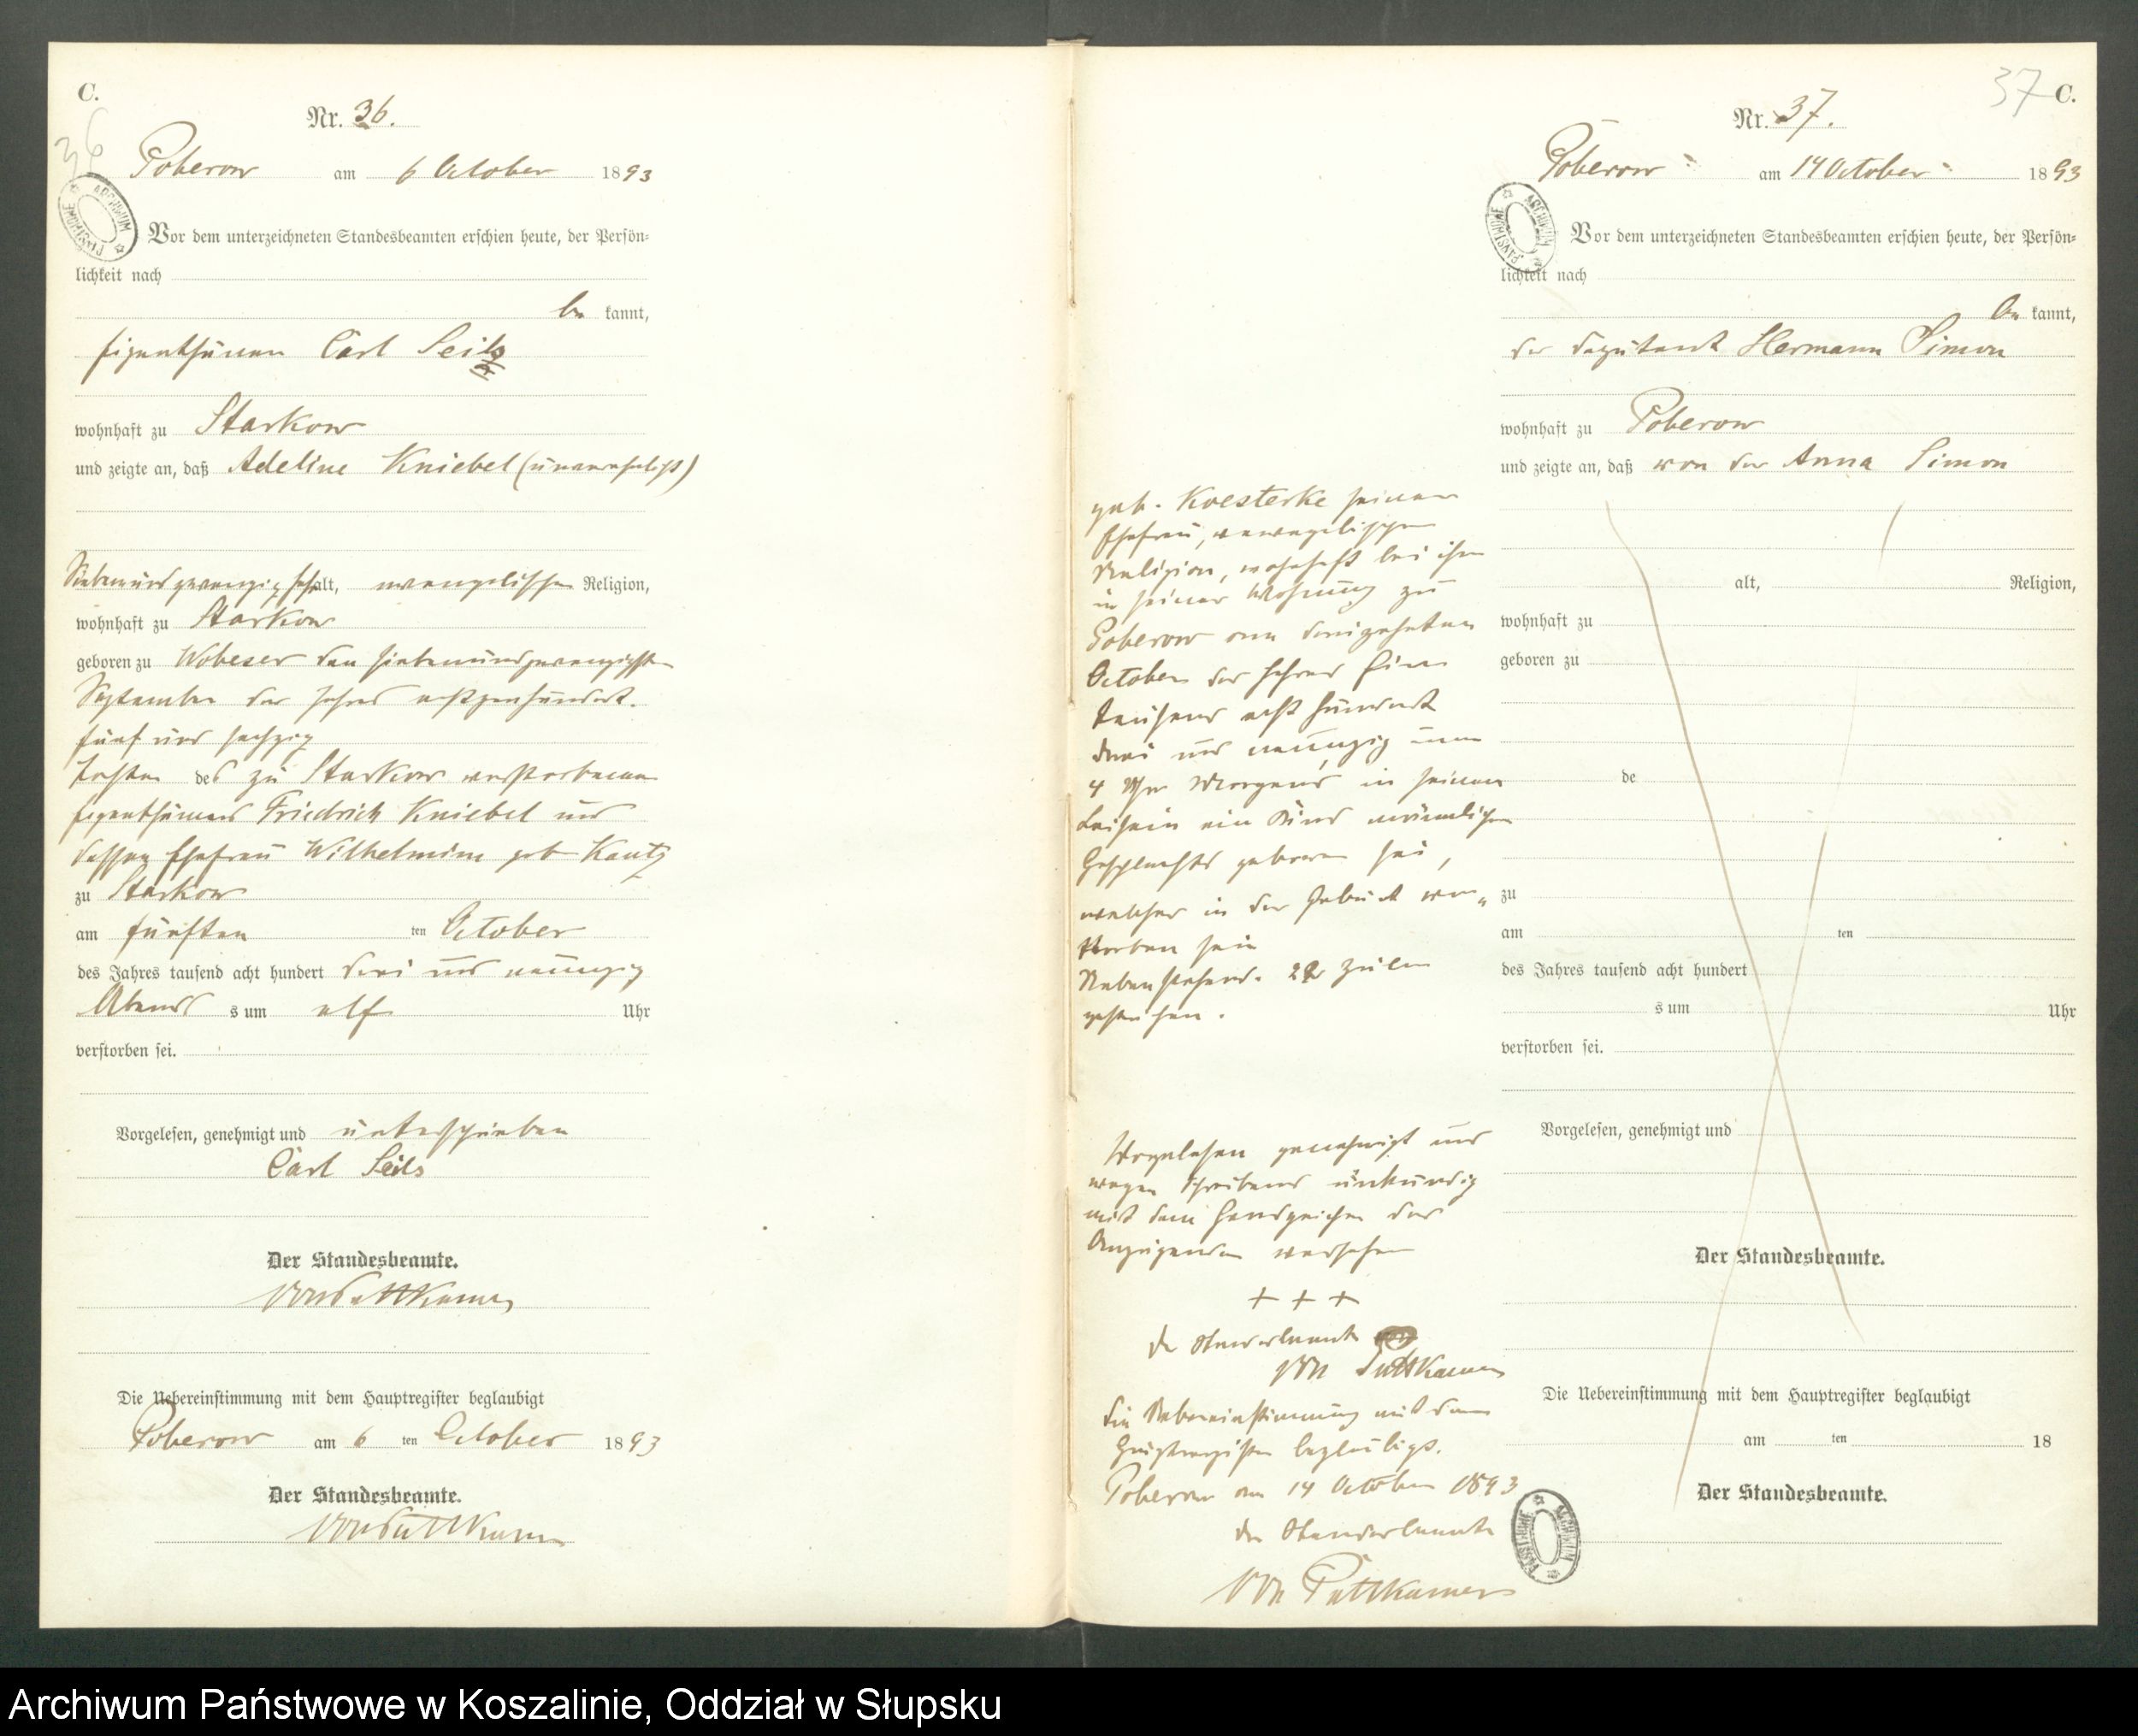 C.
36
Nr. 36.
Poberow am 6 October 1893
ARCHIWUM PAŃSTWOWE
Vor dem unterzeichneten Standesbeamten erschien heute, der Persön-
lichkeit nach
be kannt,
Eigenthümer Carl Seils
wohnhaft zu Starkow
und zeigte an, daß Adeline Kniebel (unverehelicht)
Siebenundzwanzig Jahr alt, evangelischer Religion,
wohnhaft zu Starkow
geboren zu Wobeser den siebenundzwanzigsten
September des Jahres achtzehnhundert
fünf und sechzig
Tochter des zu Starkow verstorbenen
Eigenthümers Friedrich Kniebel und
dessen Ehefrau Wilhelmine geb Kautz
zu Starkow
am fünften ten October
des Jahres tausend acht hundert drei und neunzig
Abends s um elf Uhr
verstorben sei.
Vorgelesen, genehmigt und unterschrieben
Carl Seils
Der Standesbeamte.
von Puttkamer
Die Uebereinstimmung mit dem Hauptregister beglaubigt
Poberow am 6 ten October 1893
Der Standesbeamte.
von Puttkamer
37 C.
Nr. 37.
Poberow am 14 October 1893
ARCHIWUM PAŃSTWOWE
Vor dem unterzeichneten Standesbeamten erschien heute, der Persön-
lichkeit nach
be kannt,
der Deputant Hermann Simon
wohnhaft zu Poberow
und zeigte an, daß von der Anna Simon
geb. Koesterke seiner
Ehefrau, evangelischer
Religion, wohnhaft bei ihm
in seiner Wohnung zu
Poberow am dreizehnten
October des Jahres Ein
tausend acht hundert
drei und neunzig um
4 Uhr Morgens in seinem
Beisein ein Kind männlichen
Geschlechts geboren sei,
welches in der Geburt ver„
storben sei
Nebenstehende 22 Zeilen
gestrichen.
Vorgelesen genehmigt und
wegen Schreibens unkundig
mit dem Handzeichen des
Anzeigenden versehen
+ + +
Der Standesbeamte
von Puttkamer
Die Uebereinstimmung mit dem
Hauptregister beglaubigt.
Poberow am 14 October 1893
Der Standesbeamte
von Puttkamer
alt, Religion,
wohnhaft zu
geboren zu
de
zu
am ten
des Jahres tausend acht hundert
s um Uhr
verstorben sei.
Vorgelesen, genehmigt und
Der Standesbeamte.
Die Uebereinstimmung mit dem Hauptregister beglaubigt
am ten 18
Der Standesbeamte.
ARCHIWUM PAŃSTWOWE
Archiwum Państwowe w Koszalinie, Oddział w Słupsku